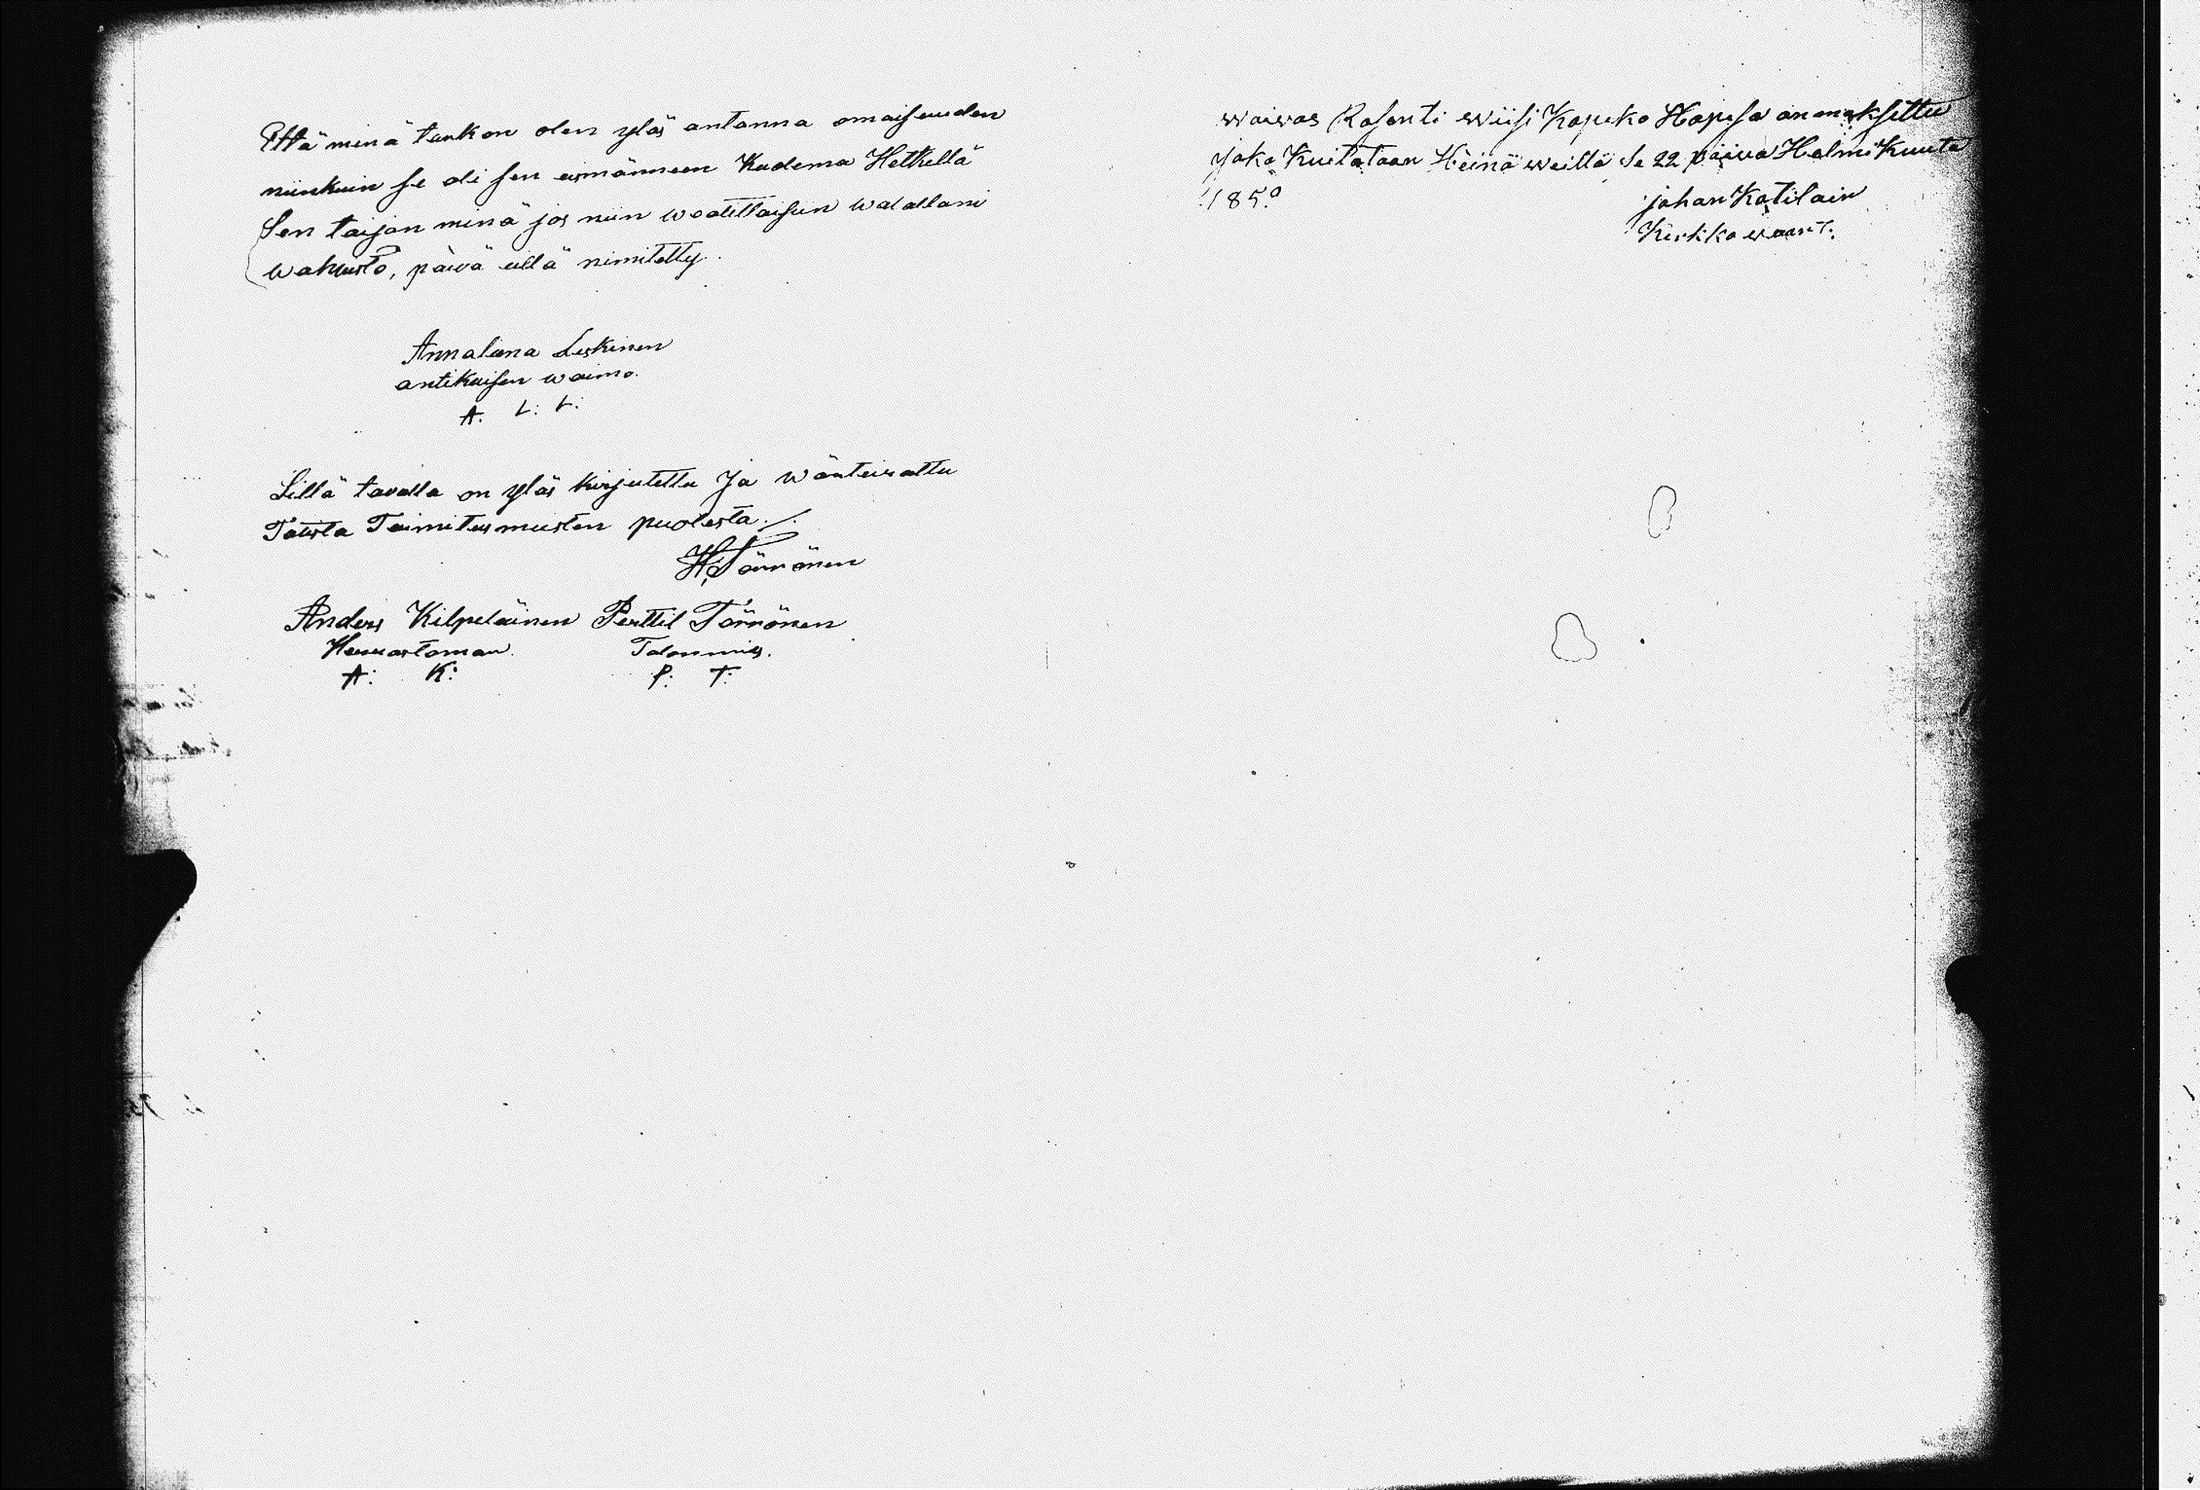 Että minä tarkon olen ylös antanna omaisuuden
niinkuin se oli sen eismänneen Kudema Hetkellä
Sen taijan minä jos niin waadittaisiin walallani
wahwista, päivä ellä nimitetty.
Annalena Leskinen
antikaisen waimo.
A. L: L:
Sillä tavalla on ylös kirjutettu Ja wärteirattu
Tästä Toimitusmiesten puolesta ./.
H. Törrönen
Anders Kilpeläinen Perttil Törrönen
Talonmies.
A: K: P: T:
waiwas Rosenti wiisi Kopeko Hopesa on maksettu
Joka Kuitataan Heinäweillä Se 22 päiwä HelmiKuuta
1850
johan Katilain
Kirkko waart: